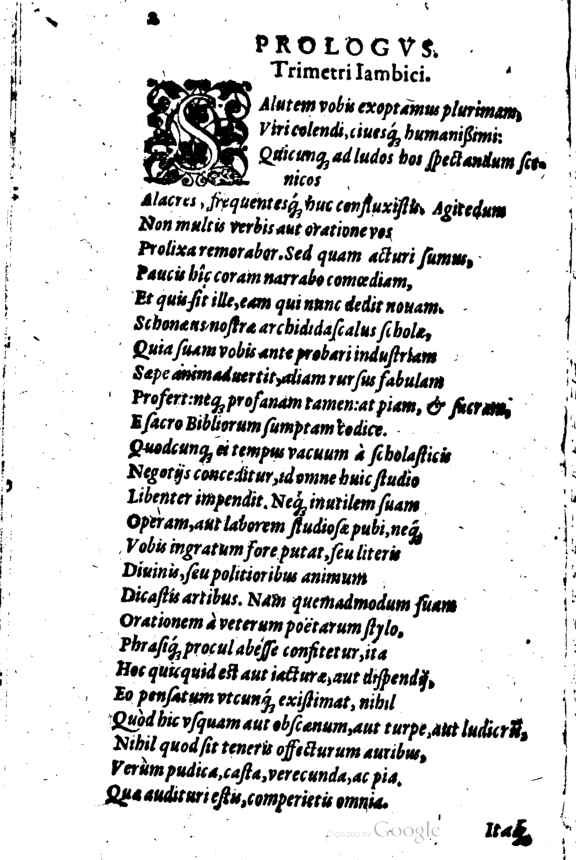 2
PROLOGVS.
Trimetri Iambici.
SAlutem vobis exoptamus plurimam,
Viri colendi, ciuesq́; humanißimi:
Quicunq; ad ludos hos spectandum sce-
nicos
Alacres, frequentesq́; huc confluxistis. Agitedum
Non multis verbis aut oratione vos
Prolixa remorabor. Sed quam acturi sumus,
Paucis hîc coram narrabo comœdiam,
Et quis sit ille, eam qui nunc dedit nouam.
Schonæus nostræ archididascalus scholæ,
Quia suam vobis ante probari industriam
Sæpe animaduertit, aliam rursus fabulam
Profert: neq; profanam tamen: at piam, & sacram,
E sacro Bibliorum sumptam codice.
Quodcunq; ei tempus vacuum à scholasticis
Negotijs conceditur, id omne huic studio
Libenter impendit. Neq́; inutilem suam
Operam, aut laborem studiosæ pubi, neq́;
Vobis ingratum fore putat, seu literis
Diuinis, seu politioribus animum
Dicastis artibus. Nam quemadmodum suam
Orationem à veterum poëtarum stylo,
Phrasiq́; procul abesse confitetur, ita
Hoc quicquid est aut iacturæ, aut dispendij,
Eo pensatum vtcunq́; existimat, nihil
Quòd hic vsquam aut obscænum, aut turpe, aut ludicrũ,
Nihil quod sit teneris offecturum auribus,
Verùm pudica, casta, verecunda, ac pia.
Quæ audituri estis, comperietis omnia.
Itaq́;
Digitized by Google